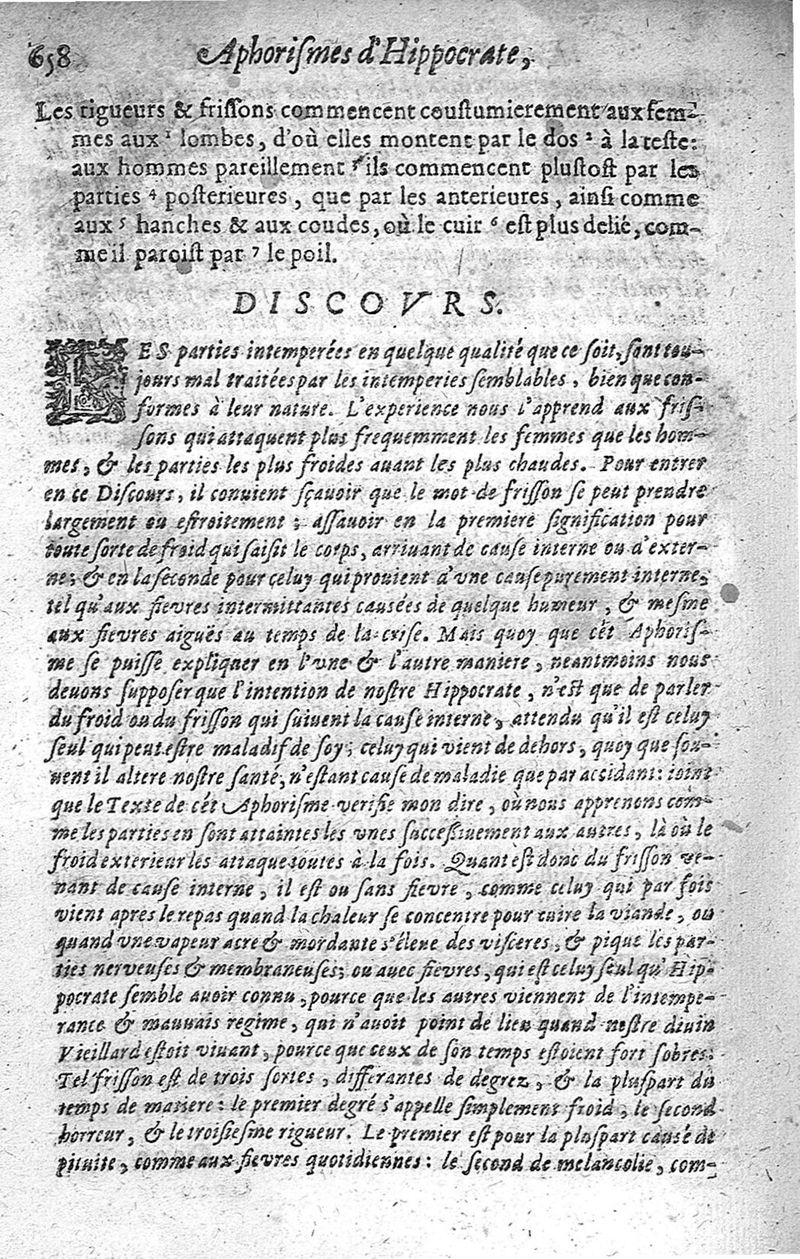 658 Aphoriſmes d'Hippocrate,
Les rigueurs & friſſons commencent couſtumierement aux fem-
mes aux ¹ lombes, d'où elles montent par le dos ² à la teſte:
aux hommes pareillement ³ ils commencent pluſtoſt par les
parties ⁴ poſterieures, que par les anterieures, ainſi comme
aux ⁵ hanches & aux coudes, où le cuir ⁶ eſt plus delié, com-
me il paroiſt par ⁷ le poil.
DISCOVRS.
LES parties intemperées en quelque qualité que ce ſoit, ſont tou-
jours mal traitées par les intemperies ſemblables, bien que con-
formes à leur nature. L'experience nous l'apprend aux friſ-
ſons qui attaquent plus frequemment les femmes que les hom-
mes, & les parties les plus froides auant les plus chaudes. Pour entrer
en ce Diſcours, il conuient ſçauoir que le mot de friſſon ſe peut prendre
largement ou eſtroitement; aſſauoir en la premiere ſignification pour
toute ſorte de froid qui ſaiſit le corps, arriuant de cauſe interne ou d'exter-
ne; & en la ſeconde pour celuy qui prouient d'vne cauſe purement interne,
tel qu'aux fievres intermittantes cauſées de quelque humeur, & meſme
aux fievres aiguës au temps de la criſe. Mais quoy que cét Aphoriſ-
me ſe puiſſe expliquer en l'vne & l'autre maniere, neantmoins nous
deuons ſuppoſer que l'intention de noſtre Hippocrate, n'eſt que de parler
du froid ou du friſſon qui ſuiuent la cauſe interne, attendu qu'il eſt celuy
ſeul qui peut eſtre maladif de ſoy; celuy qui vient de dehors, quoy que ſou-
uent il altere noſtre ſanté, n'eſtant cauſe de maladie que par accidant: ioint
que le Texte de cét Aphoriſme verifie mon dire, où nous apprenons com-
me les parties en ſont attaintes les vnes ſucceſſiuement aux autres, là où le
froid exterieur les attaque toutes à la fois. Quant eſt donc du friſſon ve-
nant de cauſe interne, il eſt ou ſans fievre, comme celuy qui par fois
vient apres le repas quand la chaleur ſe concentre pour cuire la viande, ou
quand vne vapeur acre & mordante s'éleue des viſceres, & pique les par-
ties nerveuſes & membraneuſes; ou avec fievres, qui eſt celuy ſeul qu'Hip-
pocrate ſemble auoir connu, pource que les autres viennent de l'intempe-
rance & mauuais regime, qui n'auoit point de lieu quand noſtre diuin
Vieillard eſtoit viuant, pource que ceux de ſon temps eſtoient fort ſobres.
Tel friſſon eſt de trois ſortes, differantes de degrez, & la pluſpart du
temps de matiere: le premier degré s'appelle ſimplement froid, le ſecond
horreur, & le troiſieſme rigueur. Le premier eſt pour la pluſpart cauſé de
pituite, comme aux fievres quotidiennes: le ſecond de melancolie, com-